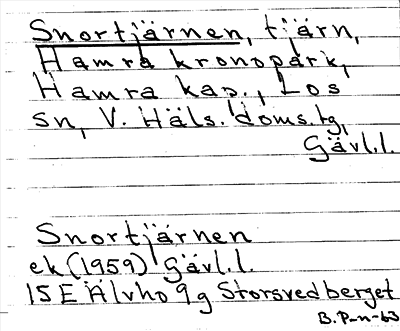 Snortjärnen, tjärn,
Hamra kronopark,
Hamra kap., Los
sn, V. Häls. doms.tg,
Gävl.l.
Snortjärnen
ek (1959) Gävl.l.
15 E Älvho 9g Storsvedberget
B. P-n-63